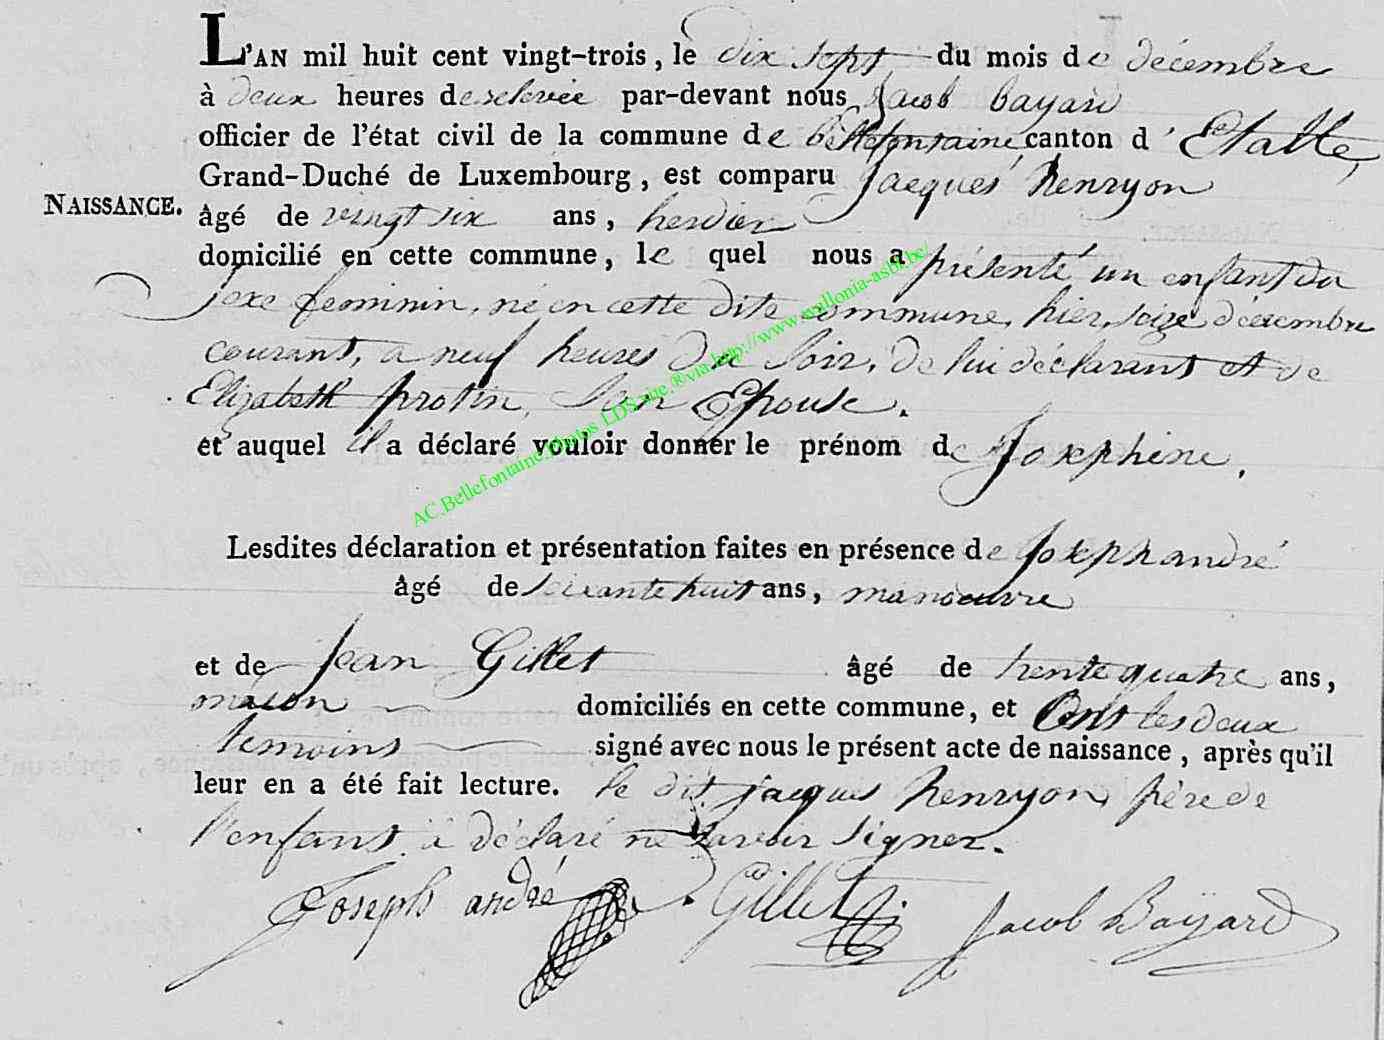 L'AN mil huit cent vingt-trois, le dix sept du mois de décembre
à deux heures de relevée par-devant nous Jacob bayard
officier de l'état civil de la commune de bellefontaine canton d'Etalle,
Grand-Duché de Luxembourg, est comparu Jacques henryon
NAISSANCE.
âgé de vingt six ans, herdier
domicilié en cette commune, le quel nous a présenté un enfant du
sexe feminin, né en cette dite commune, hier, seize décembre
courant, a neuf heures du Soir, de lui déclarant et de
Elizabeth protin, Son Epouse.
et auquel il a déclaré vouloir donner le prénom de Josephine.
AC.Bellefontaine.Photos LDS.site.®.via.http://www.wallonia-asbl.be/
Lesdites déclaration et présentation faites en présence de Joseph andré
âgé de soixante huit ans, manoeuvre
et de Jean Gillet âgé de trente quatre ans,
macon domiciliés en cette commune, et Ont les deux
temoins signé avec nous le présent acte de naissance, après qu'il
leur en a été fait lecture. le dit jacques henryon, père de
l'enfant a déclaré ne savoir signer.
Joseph andré Gillet Jacob Baÿard